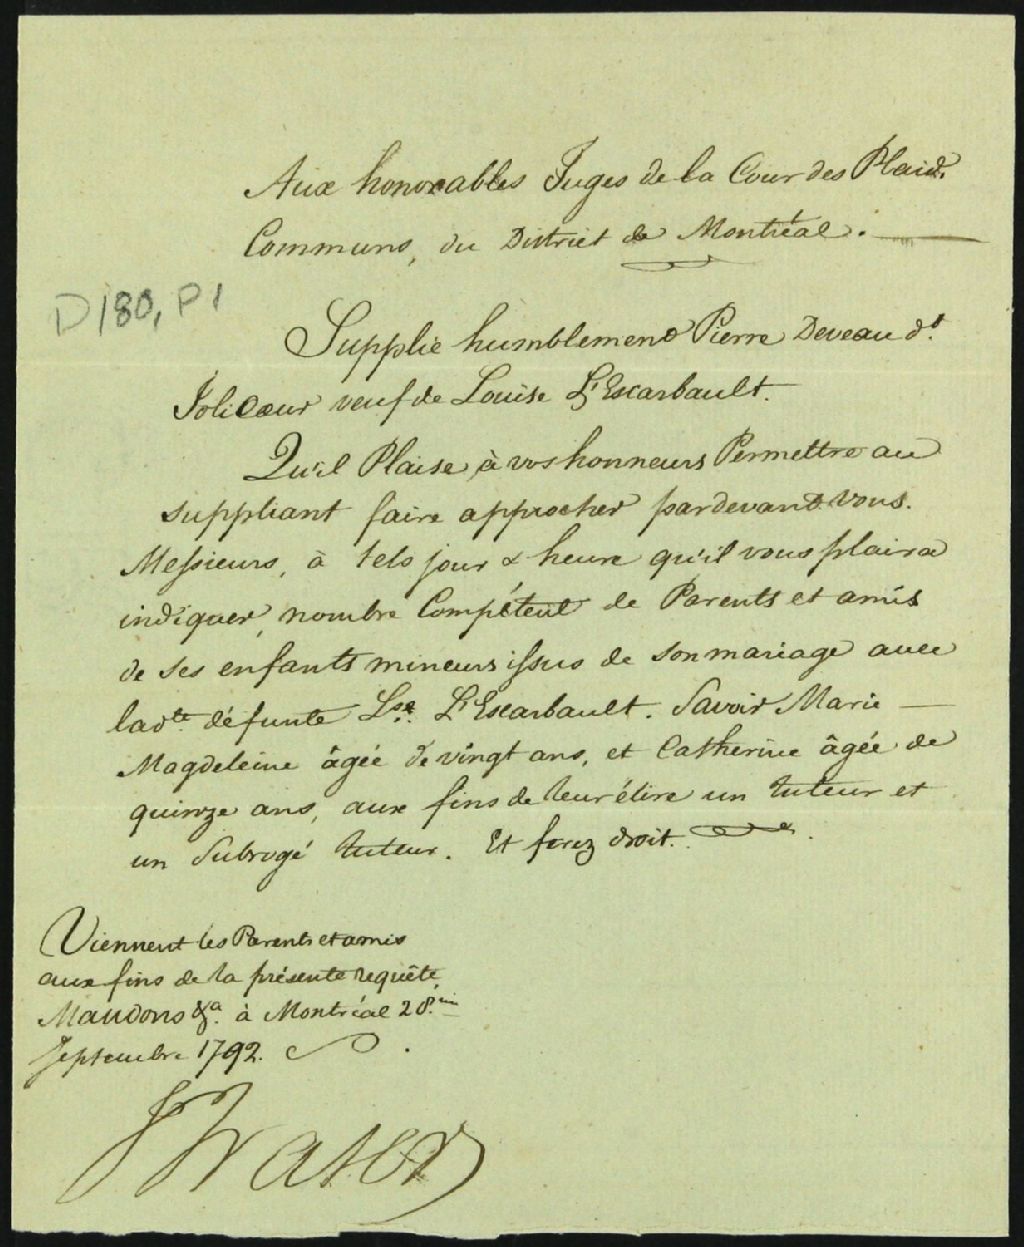 Aux honorables Juges de la Cour des Plaids.
Communs, du District de Montréal.
D180, P1
Supplie humblement Pierre Deveau dt.
Jolicœur veuf de Louise L'Escarbault.
Qu'il Plaise à vos honneurs Permettre au
suppliant faire approcher pardevant vous.
Messieurs, à tels jour & heure qu'il vous plaira
indiquer, nombre Compétent de Parents et amis
de ses enfants mineurs issus de son mariage avec
lad.te défunte Lse. L'Escarbault. Savoir Marie
Magdeleine âgée de vingt ans, et Catherine âgée de
quinze ans, aux fins de leur élire un tuteur et
un Subrogé tuteur. Et ferez droit.
Viennent les Parents et amis
aux fins de la présente requête,
Mandons &a. à Montréal 28.
Septembre 1792.
JFraser